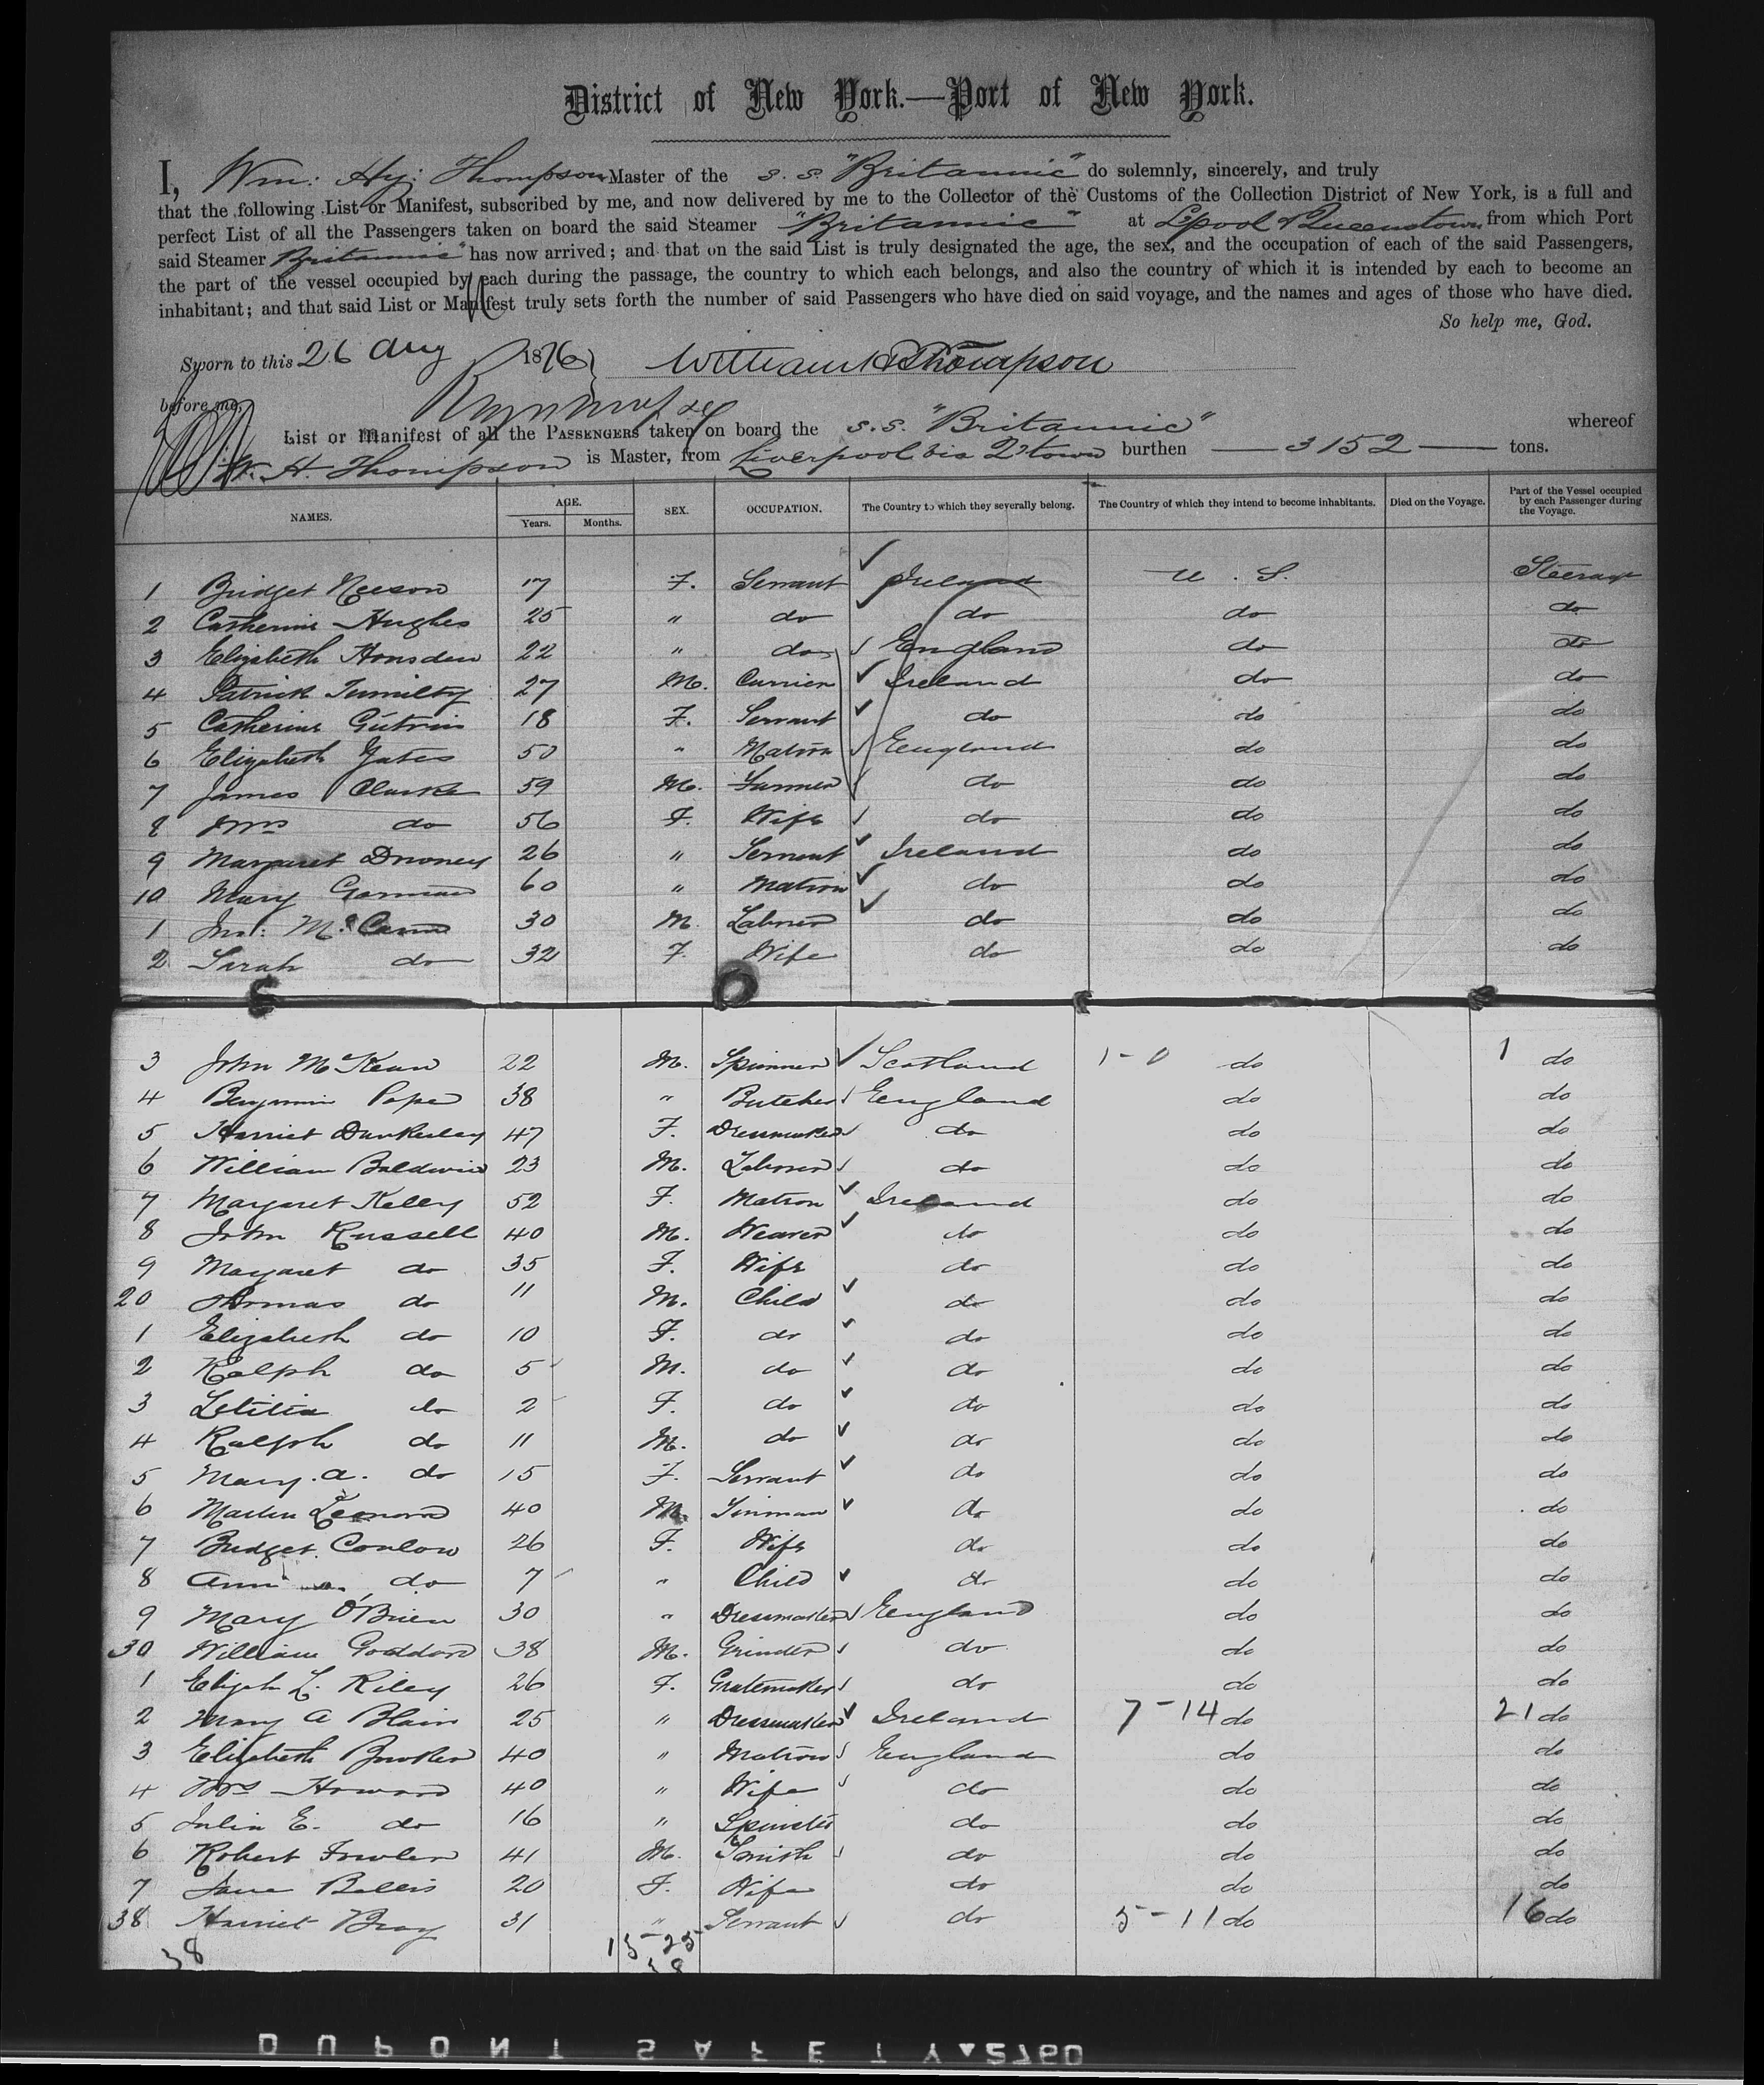 District of New York.—Port of New York.
I, Wm: Hy: Thompson Master of the s.s. "Britannic" do solemnly, sincerely, and truly
that the following List or Manifest, subscribed by me, and now delivered by me to the Collector of the Customs of the Collection District of New York, is a full and
perfect List of all the Passengers taken on board the said Steamer "Britannic" at L'pool & Queenstown from which Port
said Steamer "Britannic" has now arrived; and that on the said List is truly designated the age, the sex, and the occupation of each of the said Passengers,
the part of the vessel occupied by each during the passage, the country to which each belongs, and also the country of which it is intended by each to become an
inhabitant; and that said List or Manifest truly sets forth the number of said Passengers who have died on said voyage, and the names and ages of those who have died.
So help me, God.
Sworn to this 26 Aug 1876 William H Thompson
before me,
List or Manifest of all the PASSENGERS taken on board the s.s. "Britannic" whereof
W. H. Thompson is Master, from Liverpool via Q'town burthen 3152 tons.
NAMES. AGE. Years. Months. SEX. OCCUPATION. The Country to which they severally belong. The Country of which they intend to become inhabitants. Died on the Voyage. Part of the Vessel occupied by each Passenger during the Voyage.
1 Bridget Neeson 17 F. Servant Ireland U. S. Steerage
2 Catherine Hughes 25 " do do do do
3 Elizabeth Honsden 22 " do England do do
4 Patrick Tumilty 27 M. Currier Ireland do do
5 Catherine 18 F. Servant do do do
6 Elizabeth Yates 50 " Matron England do do
7 James Clarke 59 M. Farmer do do do
8 Mrs do 56 F. Wife do do do
9 Margaret Downey 26 " Servant Ireland do do
10 Mary Gorman 60 " Matron do do do
1 Jno: McCann 30 M. Laborer do do do
2 Sarah do 32 F. Wife do do do
3 John McKean 22 M. Spinner Scotland 1-0 do 1 do
4 Benjamin Pope 38 " Butcher England do do
5 Harriet Dunkerley 47 F. Dressmaker do do do
6 William Baldwin 23 M. Laborer do do do
7 Margaret Kelly 52 F. Matron Ireland do do
8 John Russell 40 M. Weaver do do do
9 Margaret do 35 F. Wife do do do
20 Thomas do 11 M. Child do do do
1 Elizabeth do 10 F. do do do do
2 Ralph do 5 M. do do do do
3 Letitia do 2 F. do do do do
4 Ralph do 11 M. do do do do
5 Mary. A. do 15 F. Servant do do do
6 Martin Leonard 40 M. Tinman do do do
7 Bridget Conlon 26 F. Wife do do do
8 Ann do 7 " Child do do do
9 Mary O'Brien 30 " Dressmaker England do do
30 William Goddard 38 M. Grinder do do do
1 Elizah L. Riley 26 F. Gratemaker do do do
2 Mary A Blair 25 " Dressmaker Ireland 7-14 do 21 do
3 Elizabeth 40 " Matron England do do
4 Mrs Howard 40 " Wife do do do
5 Julia E. do 16 " Spinster do do do
6 Robert Fowler 41 M. Smith do do do
7 Jane Bellis 20 F. Wife do do do
38 Harriet Bray 31 " Servant do 5-11 do 16 do
38 15-23
38
DUPONT SAFETY 2760